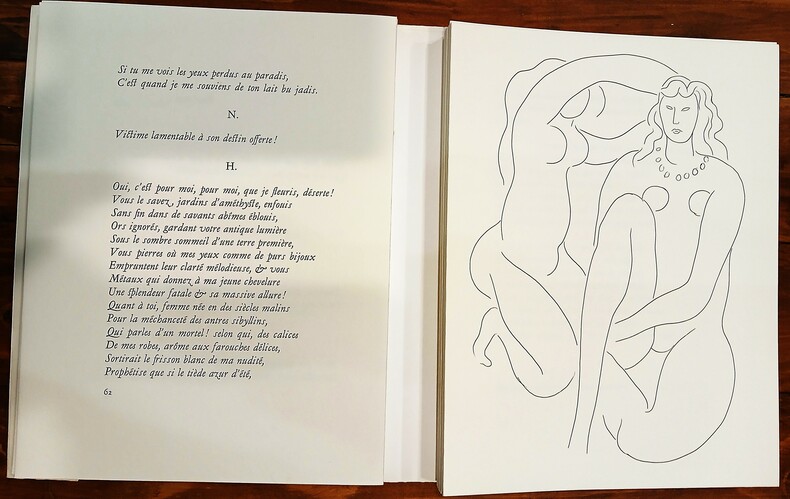 Si tu me vois les yeux perdus au paradis,
C'est quand je me souviens de ton lait bu jadis.
N.
Victime lamentable à son destin offerte!
H.
Oui, c'est pour moi, pour moi, que je fleuris, déserte!
Vous le savez, jardins d'améthyste, enfouis
Sans fin dans de savants abîmes éblouis,
Ors ignorés, gardant votre antique lumière
Sous le sombre sommeil d'une terre première,
Vous pierres où mes yeux comme de purs bijoux
Empruntent leur clarté mélodieuse, & vous
Métaux qui donnez à ma jeune chevelure
Une splendeur fatale & sa massive allure!
Quant à toi, femme née en des siècles malins
Pour la méchanceté des antres sibyllins,
Qui parles d'un mortel! selon qui, des calices
De mes robes, arôme aux farouches délices,
Sortirait le frisson blanc de ma nudité,
Prophétise que si le tiède azur d'été,
62